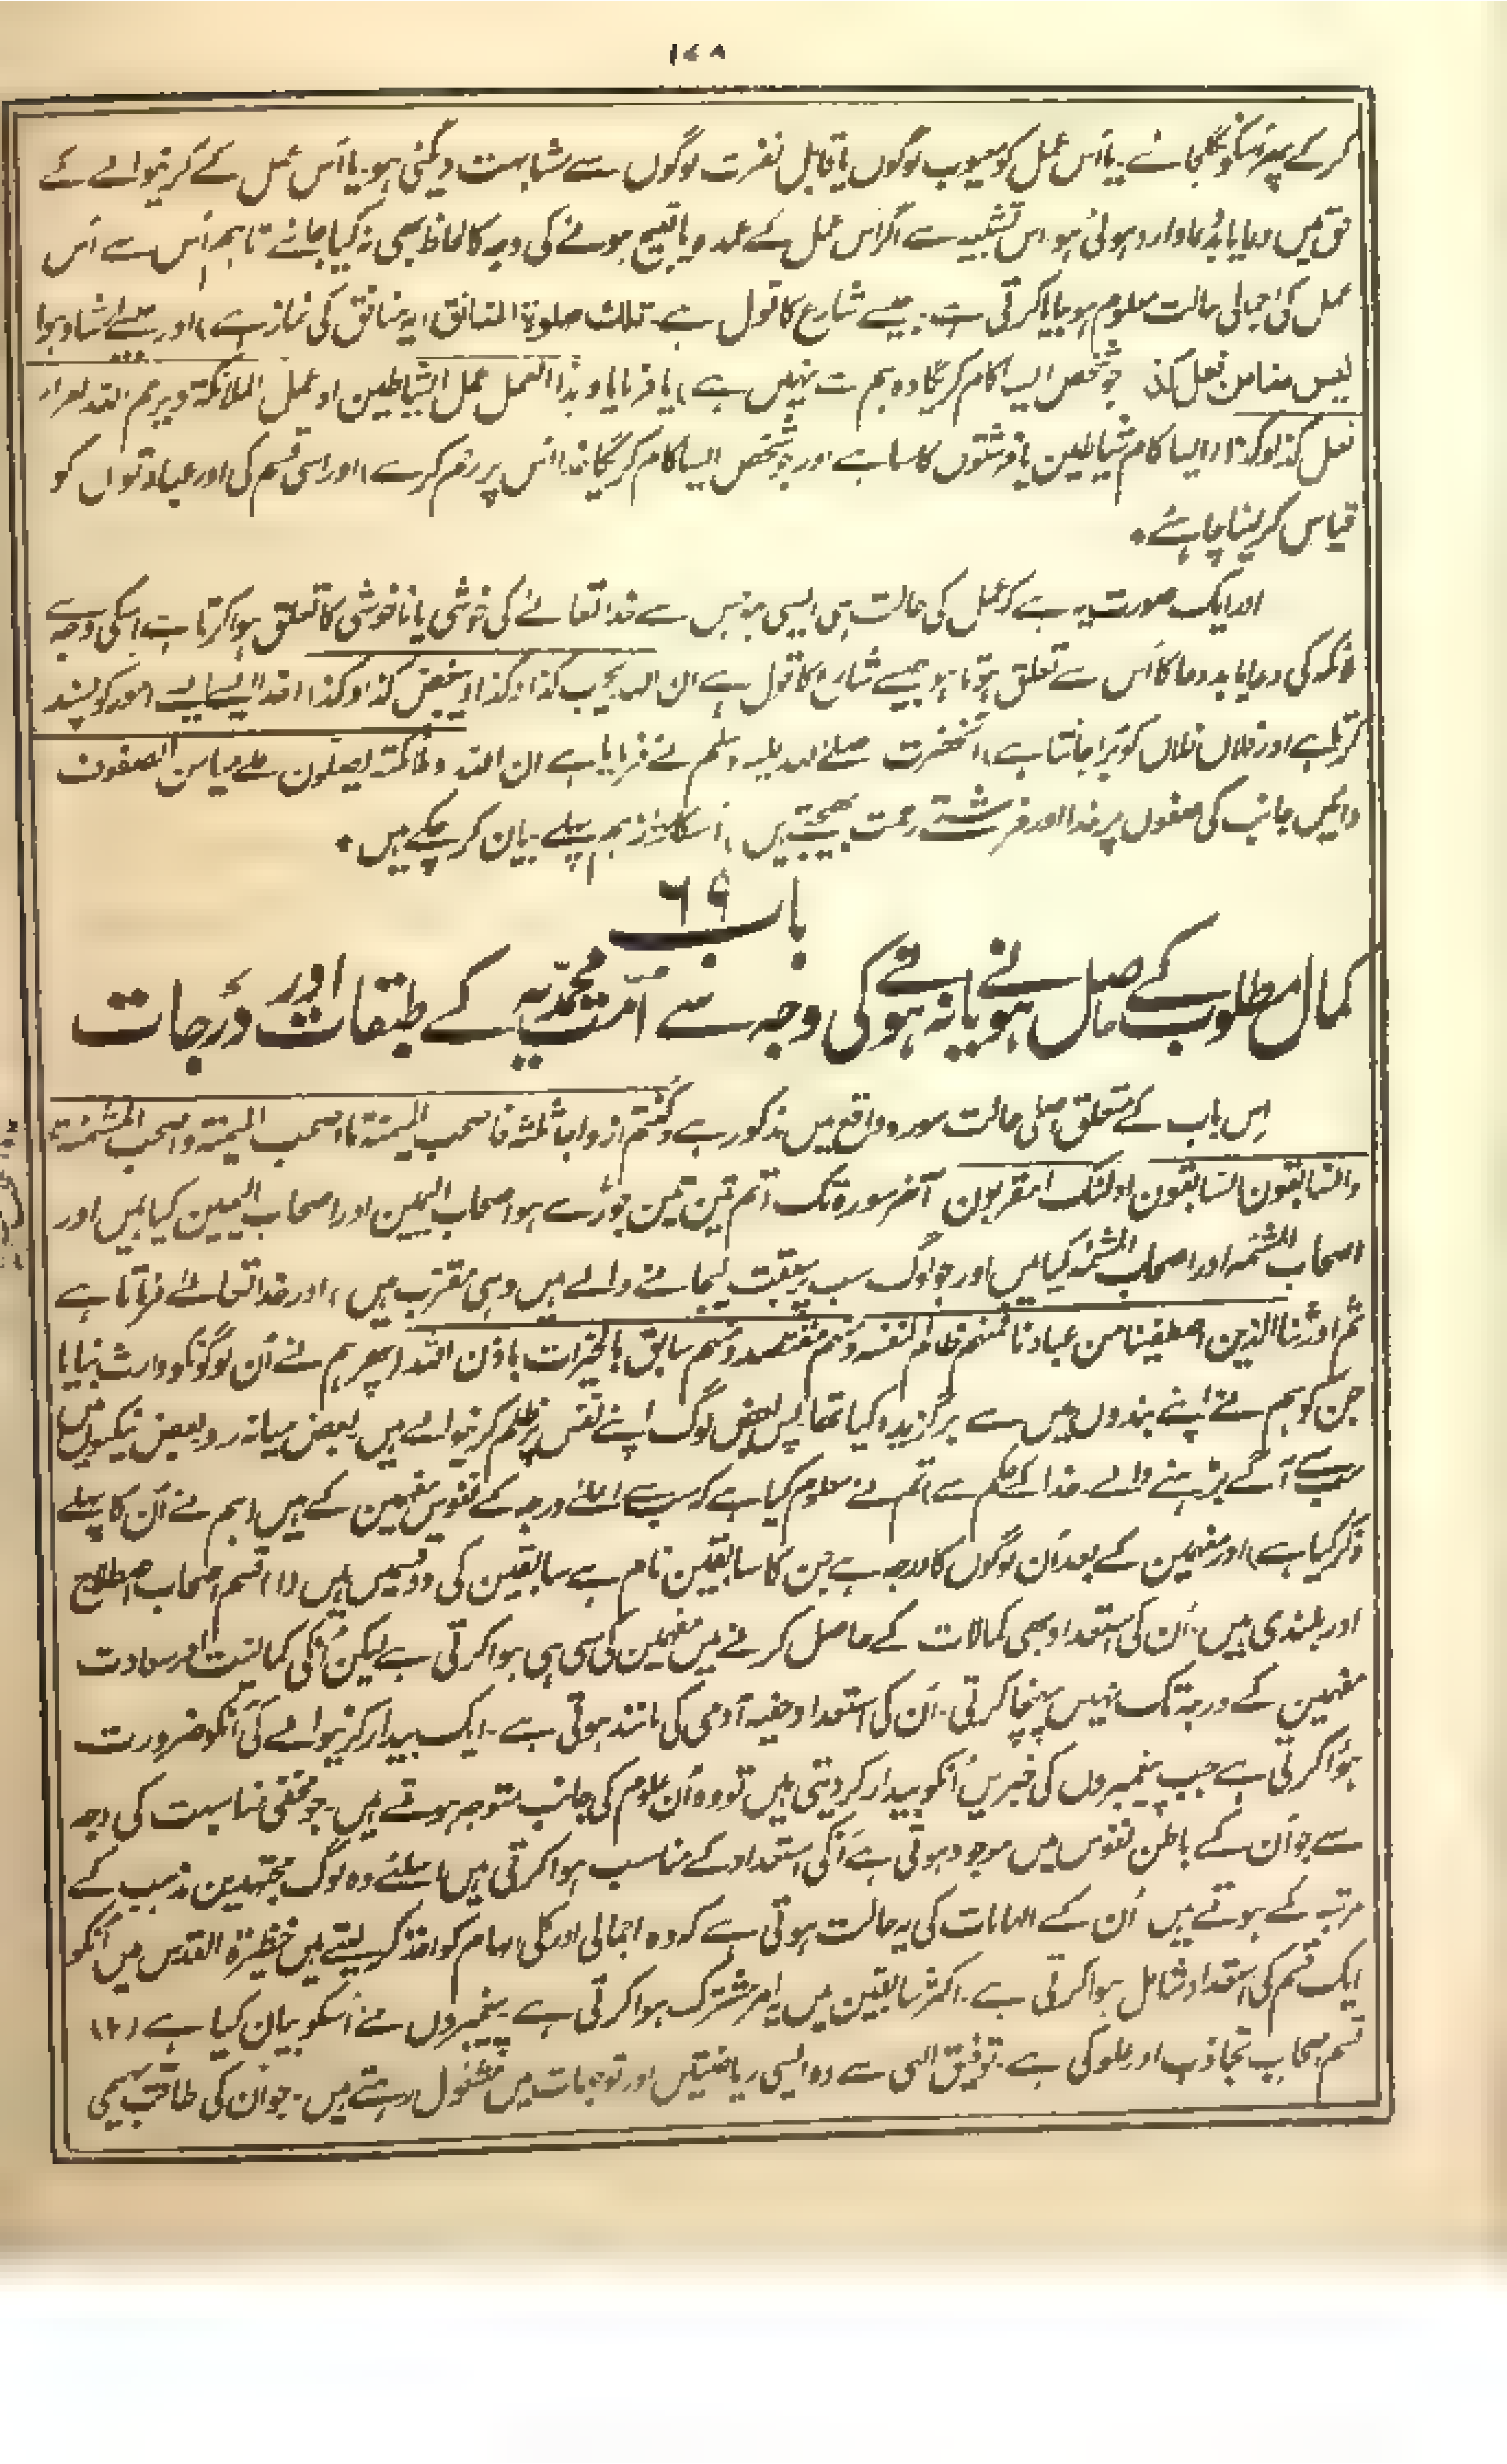 ۱۷۸
کرکے پھر اسکو نگلجائے۔ یا اُس عمل کو معیوب لوگوں یا قابل نفرت لوگوں سے مشابہت دیگئی ہو۔ یا اُس عمل کے کرنیوالے کے
حق میں دعا یا بددُعا وارد ہوئی ہو۔ اس تشبیہ سے اگر اُس عمل کے عمدہ یا قبیح ہونے کی وجہ کا لحاظ بھی نہ کیا جائے تاہم اُس سے اُس
عمل کی اجمالی حالت معلوم ہو جایا کرتی ہے۔ جیسے شارع کا قول ہے۔ تلک صلوۃ المنافق (یہ منافق کی نماز ہے) اور جیسے ارشاد ہوا
لیس منا من فعل کذا جو شخص ایسا کام کریگا وہ ہم سے نہیں ہے، یا فرمایا و ہذا العمل عمل الشیاطین او عمل الملائکۃ و یرحم اللہ امرأ
فعل کذا و کذا (ایسا کام شیاطین یا فرشتوں کا سا ہے اور جو شخص ایسا کام کریگا خدا اُس پر رحم کرے) اور اسی قسم کی اور عبادتوں کو
قیاس کر لینا چاہئے ۔
اور ایک صورت یہ ہے کہ عمل کی حالت ہی ایسی ہو جس سے خدا تعالے کی خوشی یا ناخوشی کا تعلق ہوا کرتا ہے اسکی وجہ سے
ملائکہ کی دعا یا بددعا کا اُس سے تعلق ہوتا ہو جیسے شارع کا قول ہے ان اللہ یحب کذا و کذا او یبغض کذا و کذا (خدا ایسے ایسے امور کو پسند
کرتا ہے اور فلاں فلاں کو بُرا جانتا ہے) آنحضرت صلے اللہ علیہ وسلم نے فرمایا ہے ان اللہ و ملائکتہ یصلون علے میامن الصفوف
دائیں جانب کی صفوں پر خدا اور فرشتے رحمت بھیجتے ہیں، اُسکا راز ہم پہلے بیان کر چکے ہیں ۔
باب ۶۹
کمال مطلوب کے حاصل ہونے یا نہ ہونے کی وجہ سے اُمت محمدیہ کے طبقات اور درجات
اِس باب کے متعلق اصلی حالت سورہ واقع میں مذکور ہے وکنتم ازواجا ثلثۃ فاصحب المیمنۃ ما اصحب المیمنۃ واصحب المشئمۃ
والسابقون السابقون اولئک المقربون آخر سورہ تک (تم تین تین جوڑے ہو اصحاب الیمین اور اصحاب الیمین کیا ہیں اور
اصحاب المشئمہ اور اصحاب المشئمہ کیا ہیں اور جو لوگ سب پر سبقت لیجانے والے ہیں وہی مقرب ہیں) اور خدا تعالےٰ فرماتا ہے
ثم اورثنا الذین اصطفینا من عبادنا فمنہم ظالم لنفسہ ومنہم مقتصد ومنہم سابق بالخیرات باذن اللہ (پھر ہم نے اُن لوگونکو وارث بنایا
جن کو ہم نے اپنے بندوں میں سے برگزیدہ کیا تھا پس بعض لوگ اپنے نفس پر ظلم کرنیوالے ہیں بعض میانہ رو بعض نیکیوں میں
سب سے آگے بڑہنے والے خدا کے حکم سے) تم نے معلوم کیا ہے کہ سب سے اعلےٰ درجہ کے نفوس مفہمین کے ہیں (ہم نے اُن کا پہلے
ذکر کیا ہے) اور مفہمین کے بعد اُن لوگوں کا درجہ ہے جن کا سابقین نام ہے سابقین کی دو قسمیں ہیں (۱) قسم اصحاب اصطلاح
اور بلندی ہیں۔ اُن کی استعداد بھی کمالات کے حاصل کرنے میں مفہمین کی سی ہی ہوا کرتی ہے لیکن اُنکی کمالیت اور سعادت
مفہمین کے درجہ تک نہیں پہنچا کرتی۔ اُن کی استعداد خفتہ آدمی کی مانند ہوتی ہے۔ ایک بیدار کرنیوالے کی اُنکو ضرورت
ہوا کرتی ہے جب پیغمبروں کی خبریں اُنکو بیدار کر دیتی ہیں تو وہ اُن علوم کی جانب متوجہ ہوتے ہیں۔ جو مخفی مناسبت کی وجہ
سے جو اُن کے باطن نفوس میں موجود ہوتی ہے اُنکی استعداد کے مناسب ہوا کرتی ہیں اسلئے وہ لوگ مجتہدین مذہب کے
مرتبہ کے ہوتے ہیں اُن کے الہامات کی یہ حالت ہوتی ہے کہ وہ اجمالی اور کلی الہام کو اخذ کر لیتے ہیں حظیرۃ القدس میں اُنکو
ایک قسم کی استعداد شامل ہوا کرتی ہے۔ اکثر سابقین میں یہ امر مشترک ہوا کرتی ہے۔ پیغمبروں نے اُسکو بیان کیا ہے (۲)
قسم اصحاب تجاذب اور علو کی ہے۔ توفیق الٰہی سے وہ ایسی ریاضتیں اور توجہات میں مشغول رہتے ہیں۔ جو اُن کی طاقت بہیمی